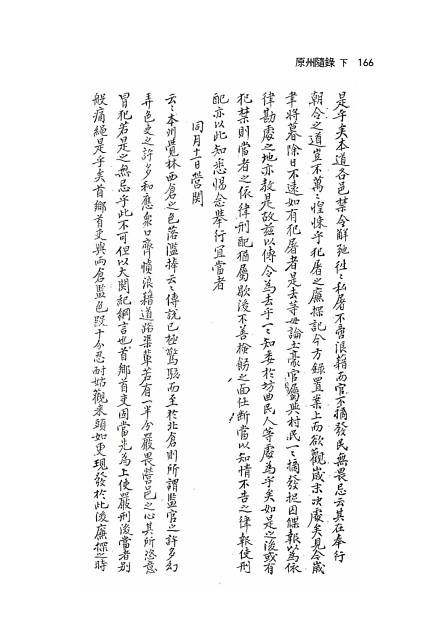 原州隨錄 下 166
是乎矣本道各邑禁令解弛往往私屠不啻狼藉而官不摘發民無畏忌云其在奉行
朝令之道豈不萬萬惶悚乎犯屠之廉探記今方錄置案上而欲觀歲末次處矣見今歲
聿將暮除日不遠如有犯屠者是去等毋論土豪官屬與村民一一摘發捉因牒報以爲依
律勘處之地亦敎是故玆以傳令爲去乎一一知委於坊曲民人等處爲乎矣如是之後或有
犯禁則當者之依律刑配猶屬歇後不善檢飭之面任斷當以知情不告之律報使刑
配亦以此知悉惕念擧行宜當者
同月十一日營關
云云本州覺林西倉之色落濫捧云云傳說已極驚駭而至於北倉則所謂監官之許多幻
弄色吏之許多和應衆口齊憤狼藉道路渠輩若有一半分嚴畏營邑之心其所恣意
冒犯若是之無忌乎此不可但以大關紀綱言也首鄕首吏固當先爲上使嚴刑後當者別
般痛繩是乎矣首鄕首吏與兩倉監色段十分忍耐姑觀來頭如更現發於此後廉探之時